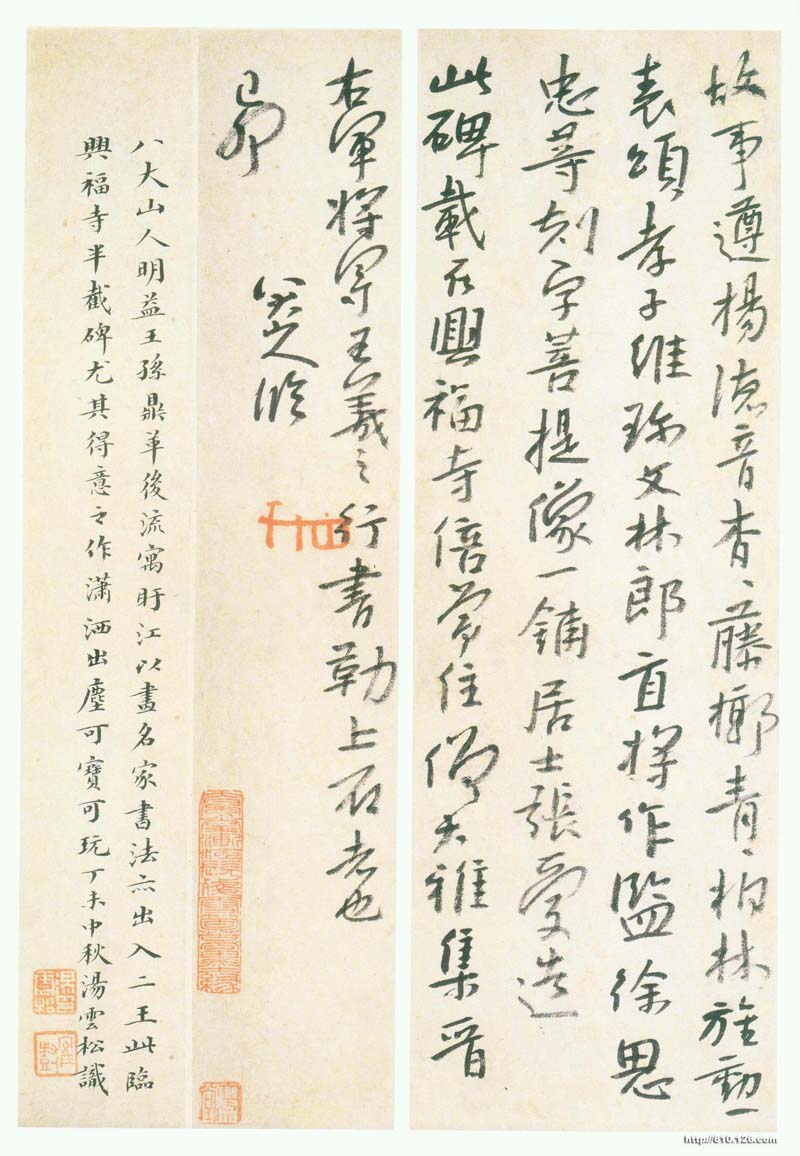 故事遵楊德音杳〻藤擲青〻柏林旌勳一
表頌孝子維孫文林郎直將作監徐思
忠等刻字菩提像一鋪居士張愛造
此碑載在興福寺倍常住僧大雅集晉
右軍將軍王羲之行書勒上石者也
己卯
八大山人臨
八大山人明益王孫鼎革後流寓盱江以畫名家書法亦出入二王此臨
興福寺半截碑尤其得意之作瀟洒出塵可寶可玩丁未中秋湯雲松識
http://610.126.com